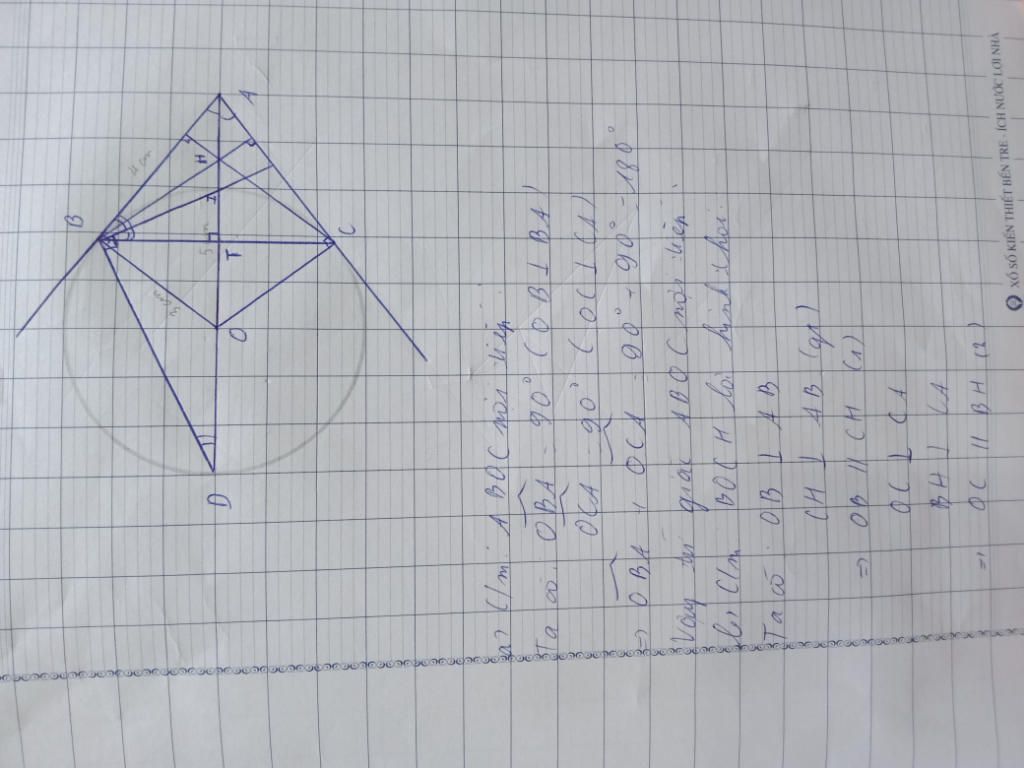 B
4 cm
A
H
I
5
T
3 cm
O
C
D
a, C/m: ABOC nội tiếp.
Ta có: OBA = 90° (OB ⊥ BA)
OCA = 90° (OC ⊥ CA)
=> OBA + OCA = 90° + 90° = 180°
Vậy tứ giác ABOC nội tiếp
b, C/m BOCH là hình thoi.
Ta có: OB ⊥ AB
CH ⊥ AB (gt)
=> OB // CH (1)
OC ⊥ CA
BH ⊥ CA
=> OC // BH (2)
XỔ SỐ KIẾN THIẾT BẾN TRE - ÍCH NƯỚC LỢI NHÀ